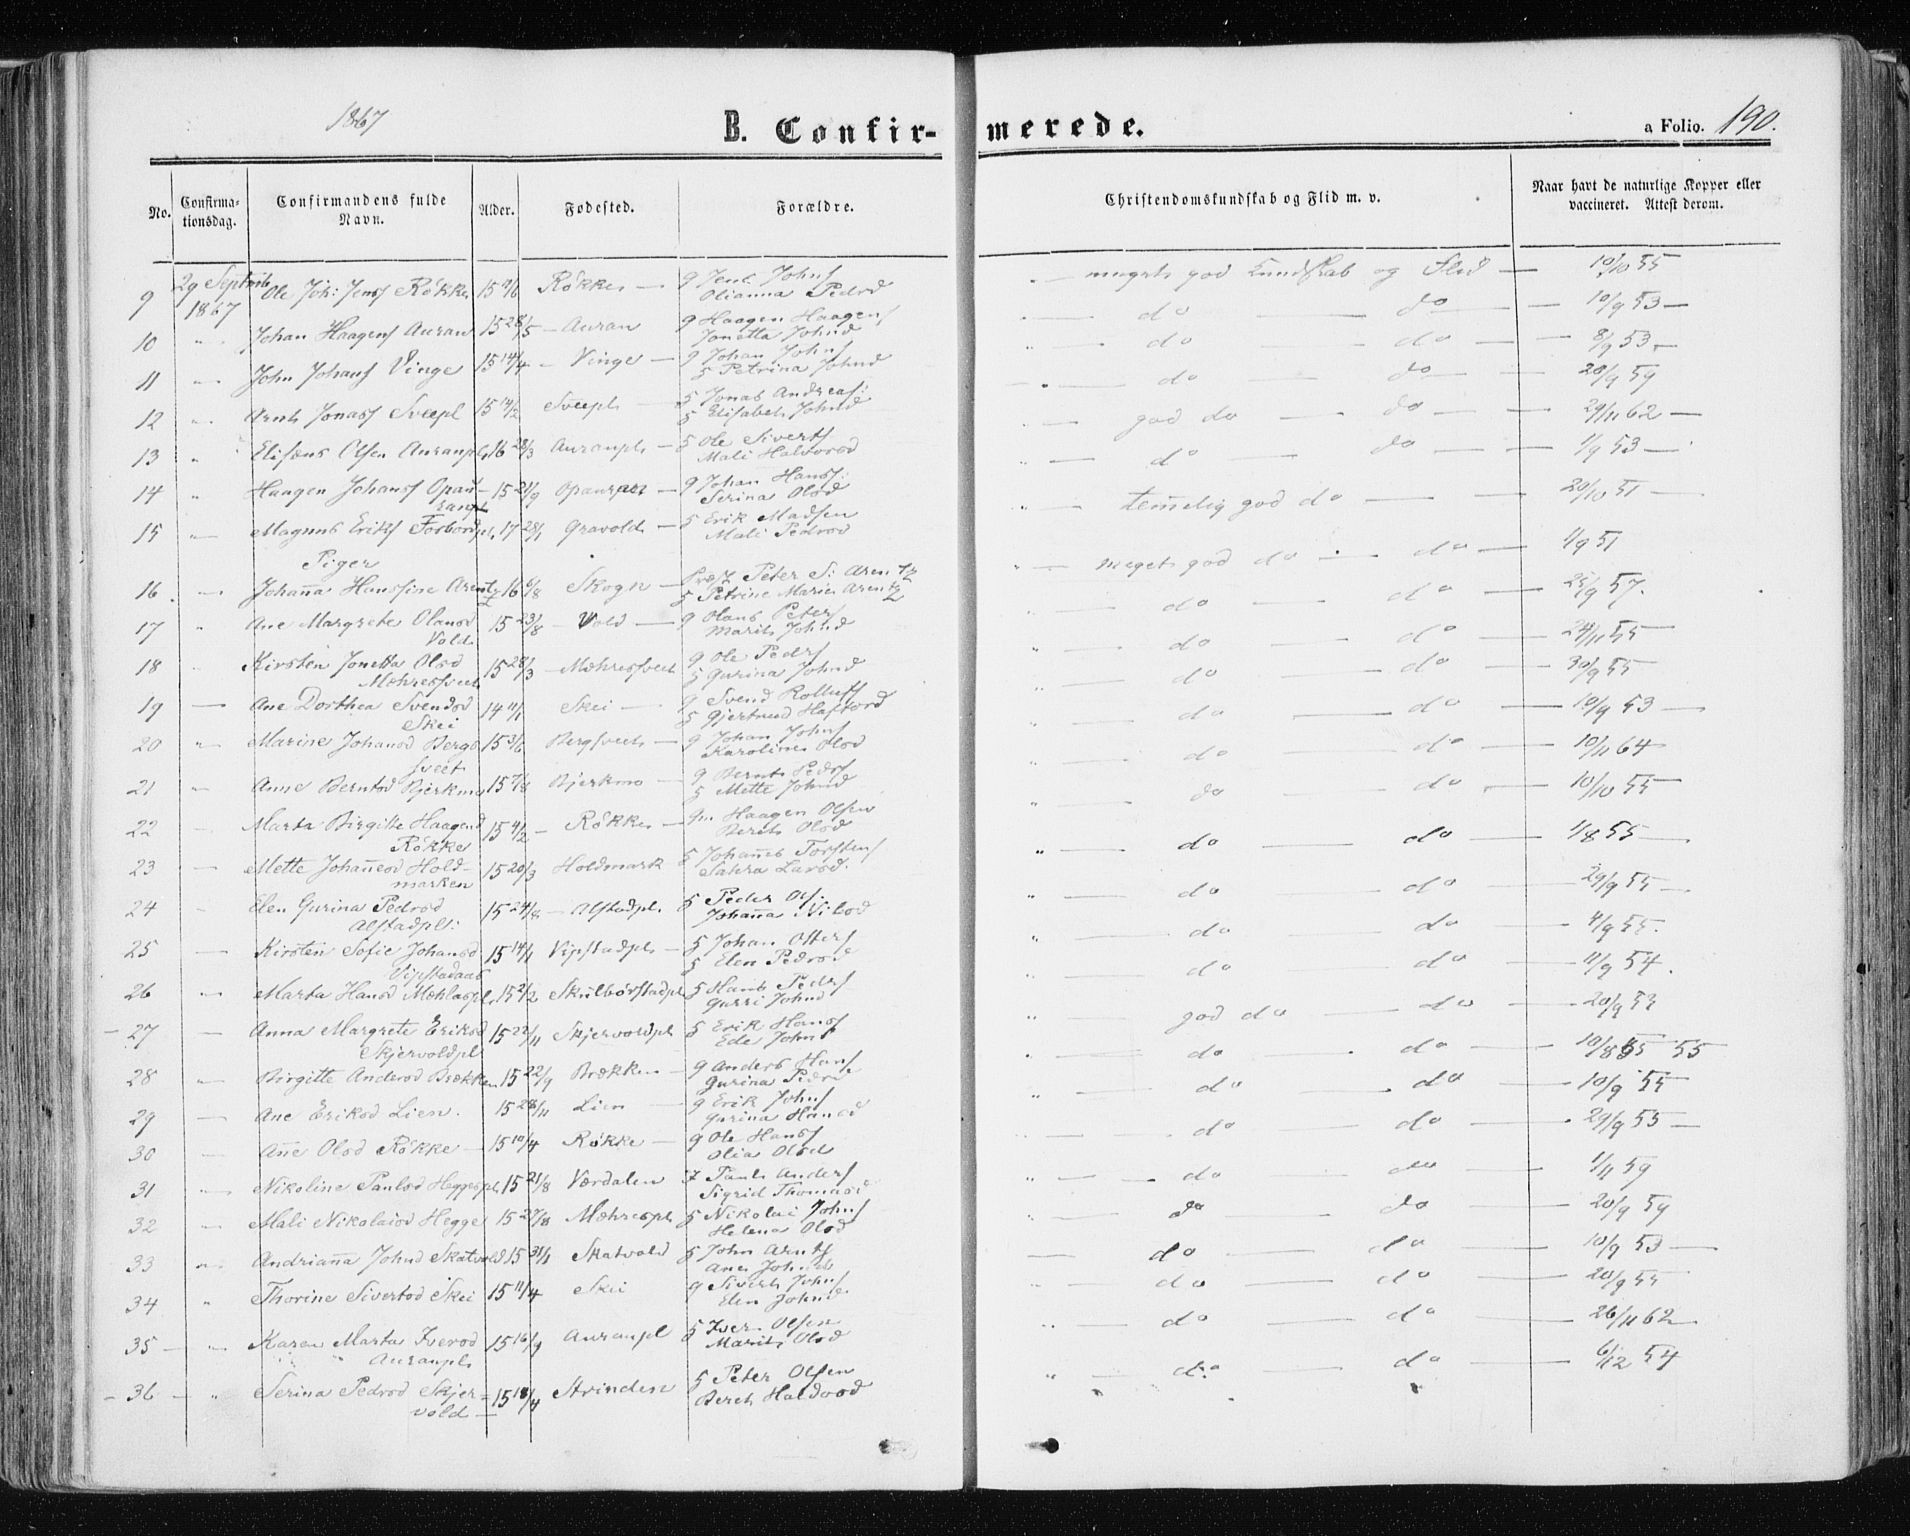 1867
B. Confirmerede.
a Folio. 190.
No. Confirmationsdag. Confirmandens fulde Navn. Alder. Fødested. Forældre. Christendomskundskab og Flid m. v. Naar havt de naturlige Kopper eller vaccineret. Attest derom.
9 29 Septmb 1867 Ole Joh: Jens Rökke 15 Rökke — g Jens Johns Olianna Pedrd — meget god Kundskab og Flid — 19/10 55
10 " Johan Haagens Auran 15 28/5 — Auran g Haagen Haagens Jonetta Johnd — do — do — 10/9 53 —
11 " John Johans Vinge 15 14/4 — Vinge — g Johan Johns 5 Petrina Johnd " — do — do — 8/9 53 —
12 " Arnt Jonass Sveepl 15 14/2 Sveepl — 5 Jonas Andreas: 5 Elisabet Johnd — do — do — 20/9 59
13 " Elisæus Olsen Auranpl 16 28/3 Auranpl — 5 Ole Siverts Mali Halvorsd " god do — do — 29/11 62 —
14 " Haagen Johans Opauranpl 15 21/9 Opauran — g Johan Hans: Serina Olsd " — do — do — 1/9 53 —
15 " Magnus Eriks Forbordpl. 17 28/1 Gravold — 5 Erik Madsen Mali Pedrsd " — temelig god do — 20/10 51 —
Piger
16. — Johana Hansine Arentz 16 6/8 Skogn — Præst Peter S: Arentz 5 Petrine Marie Arentz " — meget god do — do — 4/9 51
17 " Ane Margrete Olausd Vold 15 23/8 — Vold — g Olaus Peters Marit Johnd " — do — do — 25/9 57.
18 " Kirsten Jonetta Olsd Mæhressveet 15 28/3 — Mæhressveet g Ole Peders 5 Gurina Johnd " — do — do — 24/11 55
19 — Ane Dorthea Svendsd Skei 14 11/1 Skei — g Svend Rollufs 5 Gjertrud Hafsterd " — do — do — 30/9 55
20 " Marine Johansd Bergssveet 15 3/6 Bergsveet — g Johan Johns Karoline Olsd " — do — do — 10/9 53 —
21 " Anne Berntsd Bjerkmo 15 7/8 Bjerkmo — g Bernt Peders 5 Mette Johnd " — do — do — 10/11 64
22 — Marta Birgitte Haagensd Rökke 15 4/2 — Rökke — gm Haagen Olsen Berit Olsd " — do — do — 10/10 55
23 — Mette Johanesd Holdmarken 15 20/3 Holdmark 5 Johannes Torstens Sahra Larsd. " — do — do — 1/8 55 —
24 — Elen Gurina Pedrsd Alstadpl: 15 24/8 — Alstadpl. 5 Peder Ols: Johana Nilsd " — do — do — 29/9 55 —
25 — Kirsten Sofie Johansd Vipstadaas 15 14/1 Vipstadpl — 5 Johan Otters 5 Elen Pedrsd " — do — do — 4/9 55.
26 — Marta Hansd Mæhlaspl. 15 2/2 Skulbørstadpl 5 Hans Peders Gurri Johnd " — do — do — 11/9 54.
- 27 — Anna Margrete Eriksd Skjervoldpl 15 22/11 Skjervoldpl 5 Erik Hans Ede John " — god do — do — 20/9 53
28 " Birgitte Andersd Brækken 15 22/9 Brækken — g Anders Hans Gurina Pedrd " — do — do — 10/8 55 55
29 — Ane Eriksd Lien. 15 28/11 Lien — g Erik Johns Gurina Hansd " — do — do — 10/9 55
30 — Ane Olsd Rökke — 15 10/4 Rökke — g Ole Hans Olia Olsd — do — do — 29/9 55 —
31 — Nikoline Paulsd Heggespl. 15 21/8 Værdalen 7 Paul Anders Sigrid Thomasd " — do — do — 1/11 59
32 " Mali Nikolaisd Hegge 15 27/8 Mæhrespl 5 Nikolai Johns Helena Olsd " — do — do — 20/9 59
33 " Andriana Johnd Skatvold 15 31/1 Skatvold 5 John Arnts Ane Johnsd — do — do — 10/9 53 —
34 " Thorine Sivertsd Skei 15 11/4 Skei g Sivert Johns Elen Johnd " — do — do — 20/9 55
35 — " Karen Marta Iversd Auranpl 15 16/9 Auranpl 5 Iver Olsen Marit Olsd " — do — do — 26/11 62
- 36 — " Serina Pedrsd Skjervold — 15 18/4 Strinden 5 Peter Olsen Beret Haldvod " — do — do — 6/12 54